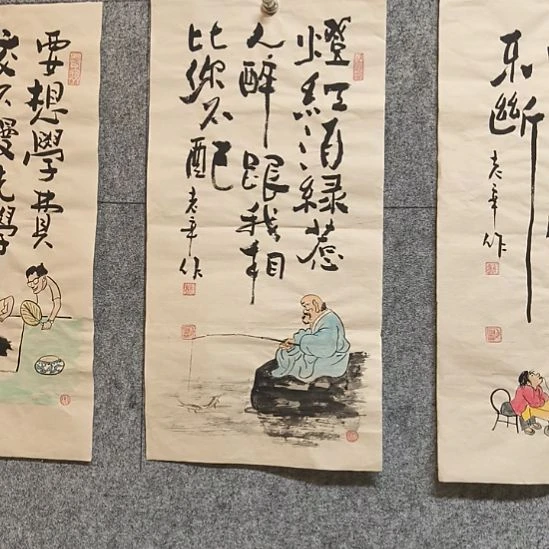 要想學費
不
先學
燈紅酒綠惹
人醉跟我相
比你不配
老辛作
不斷
老辛作